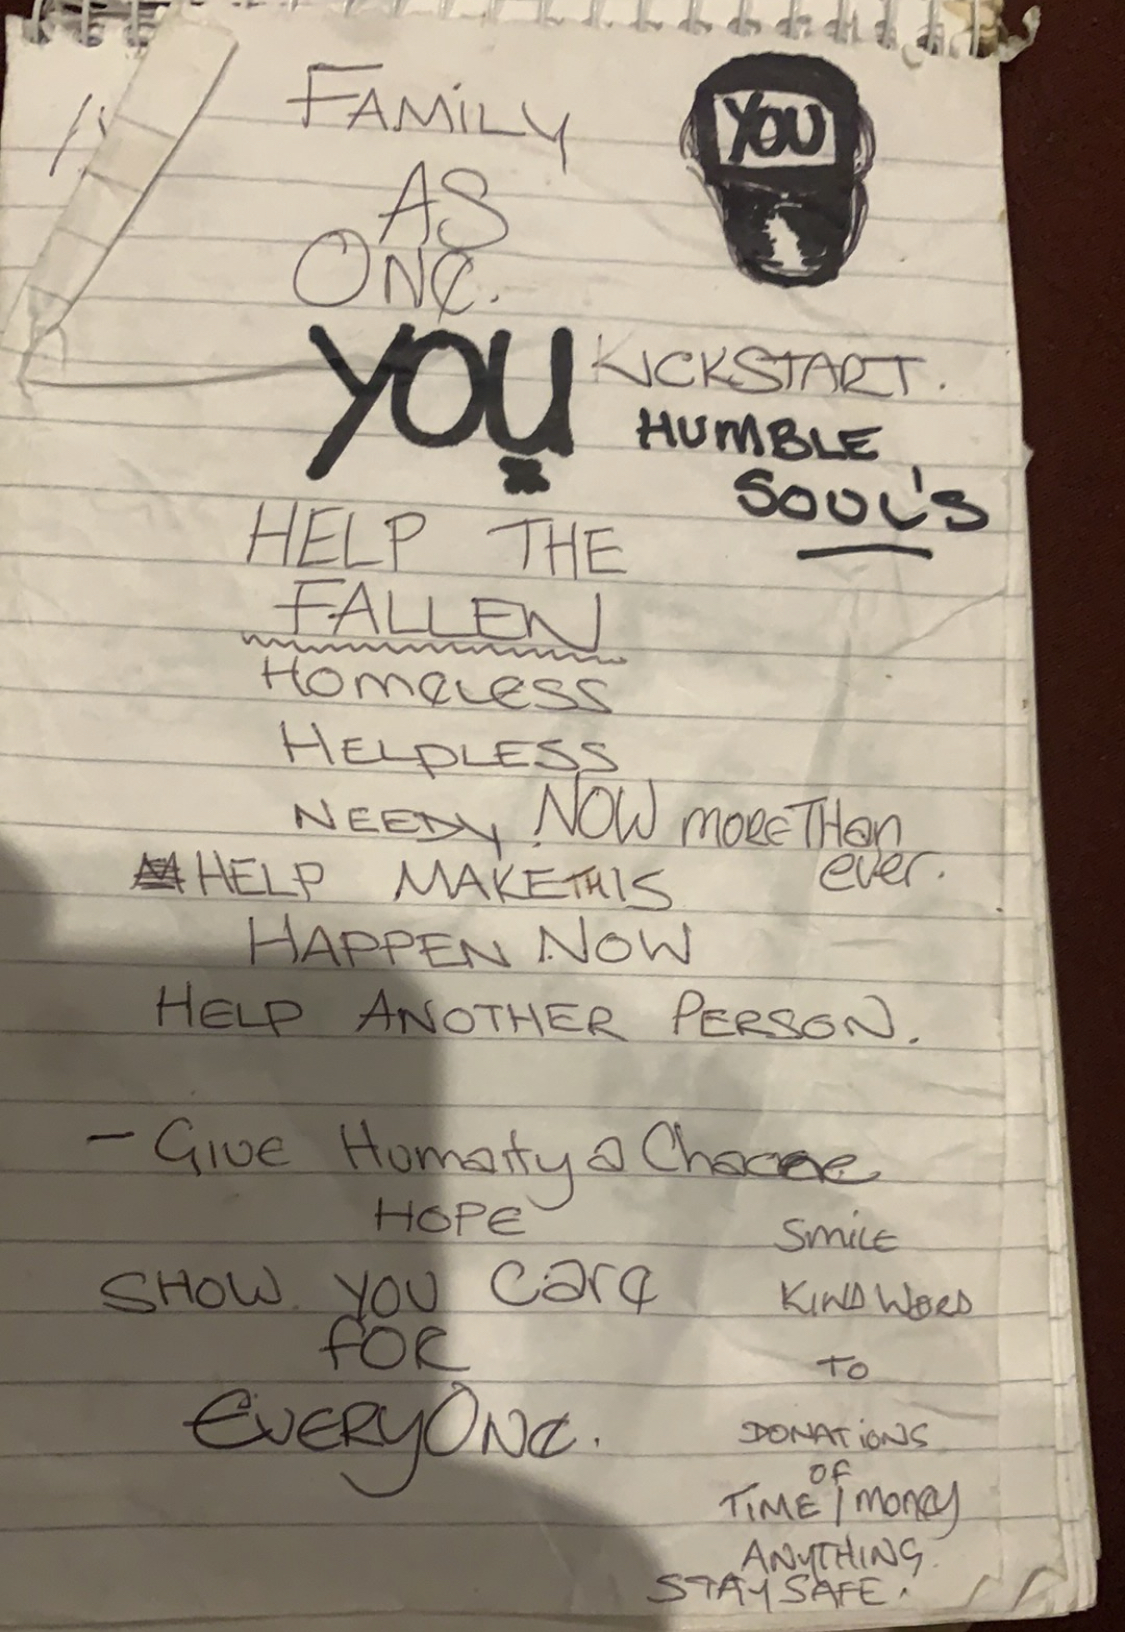 FAMILY
AS
ONE.
YOU
YOU KICKSTART.
HUMBLE
SOUL'S
HELP THE
FALLEN
HOMELESS
HELPLESS
NEEDY. NOW MORE THAN
ever.
HELP MAKE THIS
HAPPEN NOW
HELP ANOTHER PERSON.
- GIVE Humaity a Chacne
HOPE
SHOW YOU CARE
FOR
EVERYONE.
SMILE
KIND WORD
TO
DONATIONS
OF
TIME / MONEY
ANYTHING.
STAY SAFE.